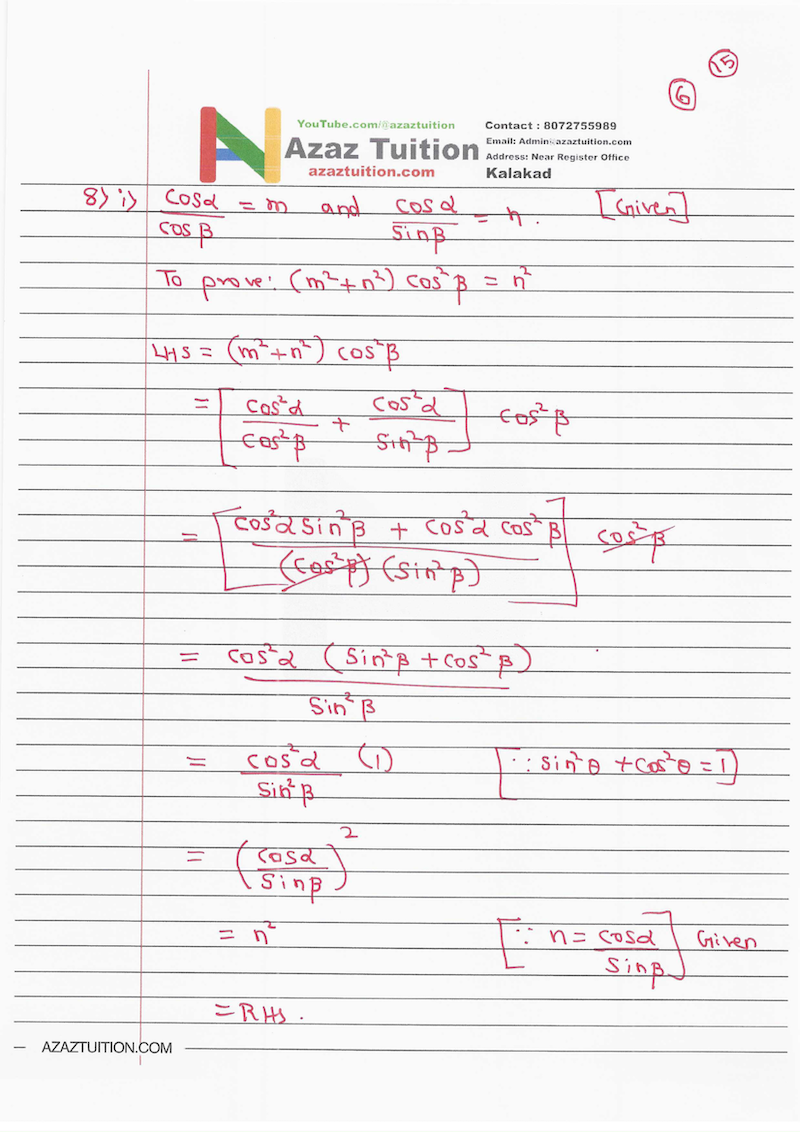 15
6
YouTube.com/@azaztuition
Contact : 8072755989
Azaz Tuition
Email: Admin@azaztuition.com
azaztuition.com
Address: Near Register Office
Kalakad
8) i) cosα/cosβ = m and cosα/sinβ = n. [Given]
To prove: (m²+n²) cos²β = n²
LHS = (m²+n²) cos²β
= [cos²α/cos²β + cos²α/sin²β] cos²β
= [cos²α sin²β + cos²α cos²β/(cos²β)(sin²β)] cos²β
= cos²α (sin²β + cos²β)/sin²β
= cos²α (1)/sin²β [∵ sin²θ + cos²θ = 1]
= (cosα/sinβ)²
= n² [∵ n = cosα/sinβ] Given
= RHS.
AZAZTUITION.COM